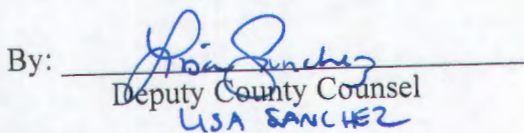 By: Lisa Sanchez
Deputy County Counsel
LISA SANCHEZ